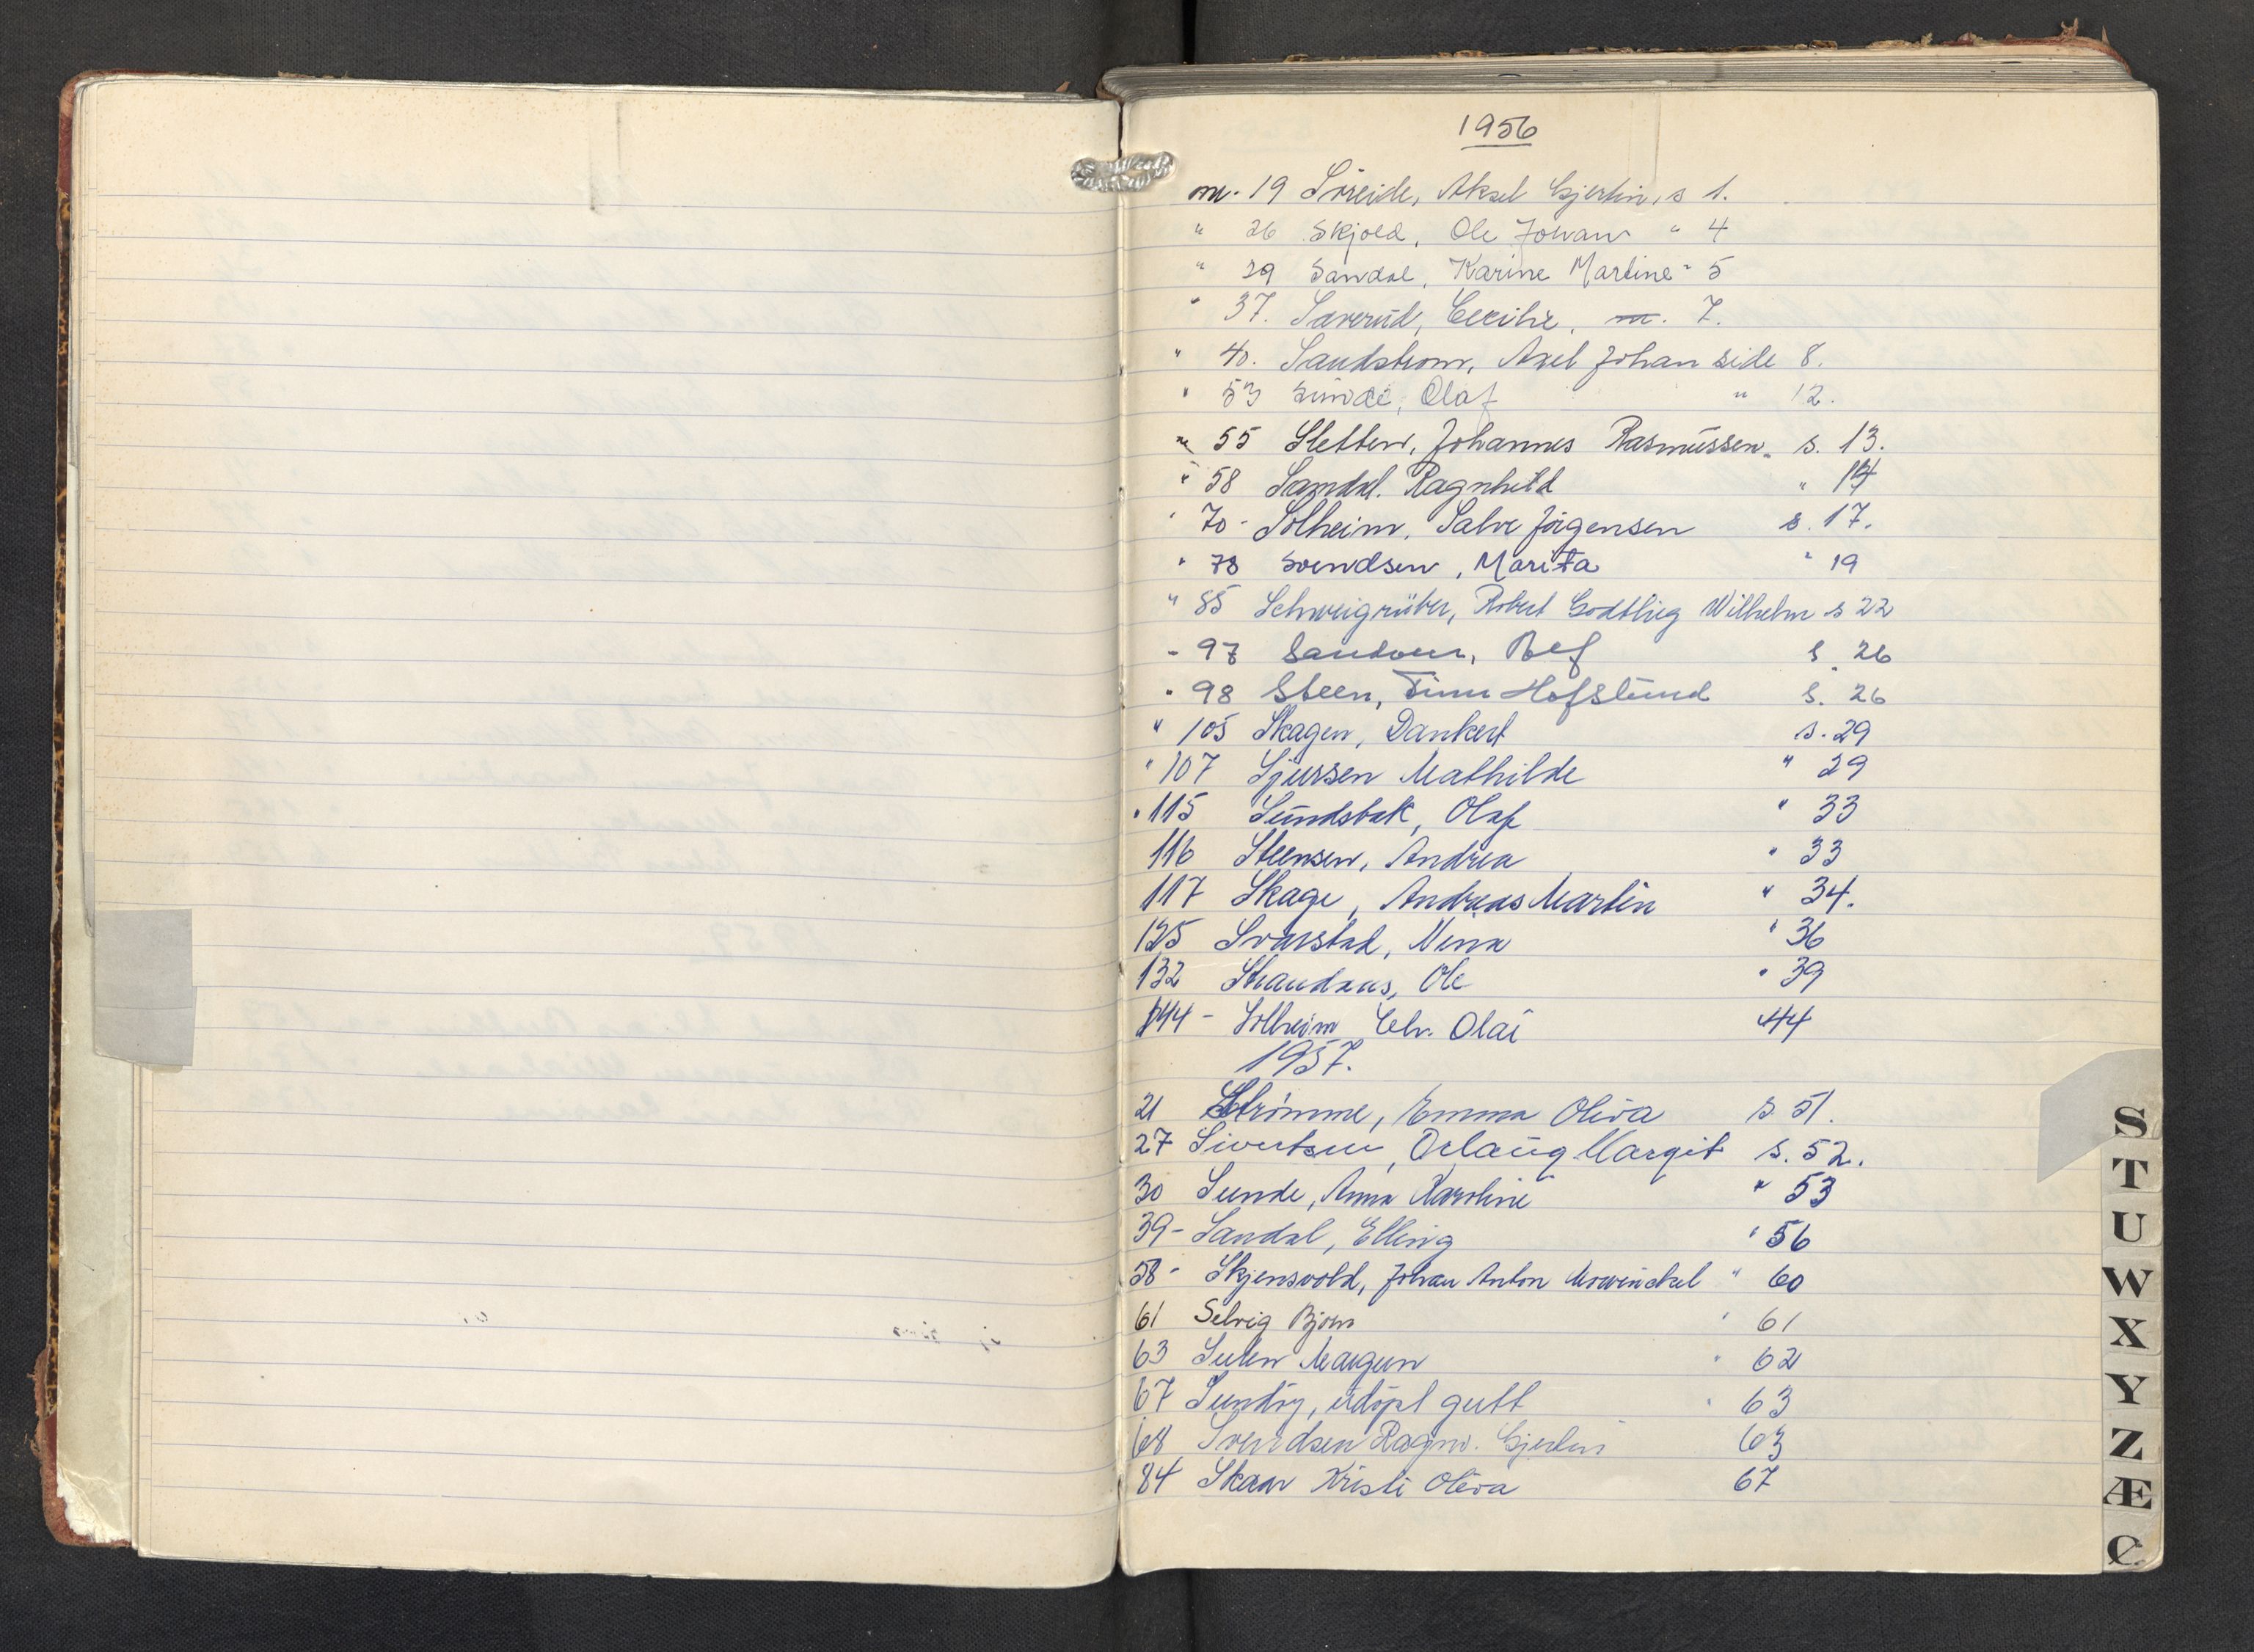 1956
nr. 19 Søreide, Aksel Gjertin, s 1.
" 26 Skjold, Ole Johan " 4
" 29 Sandal, Karine Martine " 5
" 37. Sæverud, Cecilie, 7.
" 40. Sandstrom, Axel Johan side 8.
" 53 Sunde, Olaf " 12.
" 55 Sletten, Johannes Rasmussen. s. 13.
" 58 Sandal. Ragnhild " 14
" 70 - Solheim, Salve Jörgensen s. 17.
" 78 Svendsen, Marita " 19
" 85 Schweigrüber, Robert Godtlieg Wilhelm s 22
- 97 Sandven, s. 26
" 98 Steen, Finn Hofslund s. 26
" 105 Skagen, Dankert s. 29
" 107 Sjursen Mathilde " 29
" 115 Sundsbak, Olaf " 33
116 Steensen, Andrea " 33
117 Skage, Andreas Martin " 34.
125 Svarstad, Nina " 36
132 Strandnæs, Ole " 39
144 - Solheim Chr. Olai 44
1957.
21 Strömme, Emma Oliva s. 51.
27 Sivertsen, Margit s. 52.
30 Sunde, Anna Karoline " 53
39 - Sandal, Elling " 56
58 - Skjensvold, Johan Anton Mowinckel " 60
61 Selvig Bjørn " 61
63 Sulen Margun " 62
67 Sundöy, udöpt gutt " 63
68 Svendsen Ragnv. Gjertin 63
84 Skaar Kristi Oliva 67
S
T
U
W
X
Y
Z
Æ
Ø